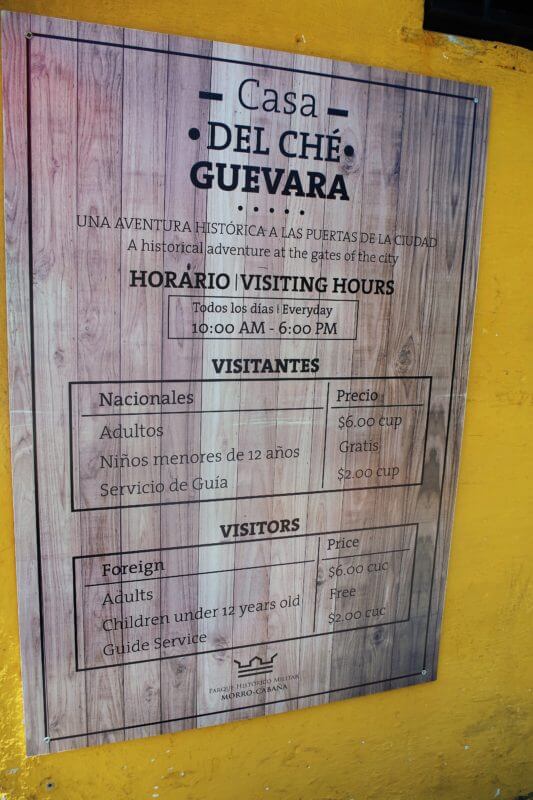 Casa
DEL CHÉ
GUEVARA
UNA AVENTURA HISTÓRICA A LAS PUERTAS DE LA CIUDAD
A historical adventure at the gates of the city
HORÁRIO | VISITING HOURS
Todos los días | Everyday
10:00 AM - 6:00 PM
VISITANTES
Nacionales Precio
Adultos $6.00 cup
Niños menores de 12 años Gratis
Servicio de Guía $2.00 cup
VISITORS
Foreign Price
Adults $6.00 cuc
Children under 12 years old Free
Guide Service $2.00 cuc
PARQUE HISTÓRICO MILITAR
MORRO-CABAÑA